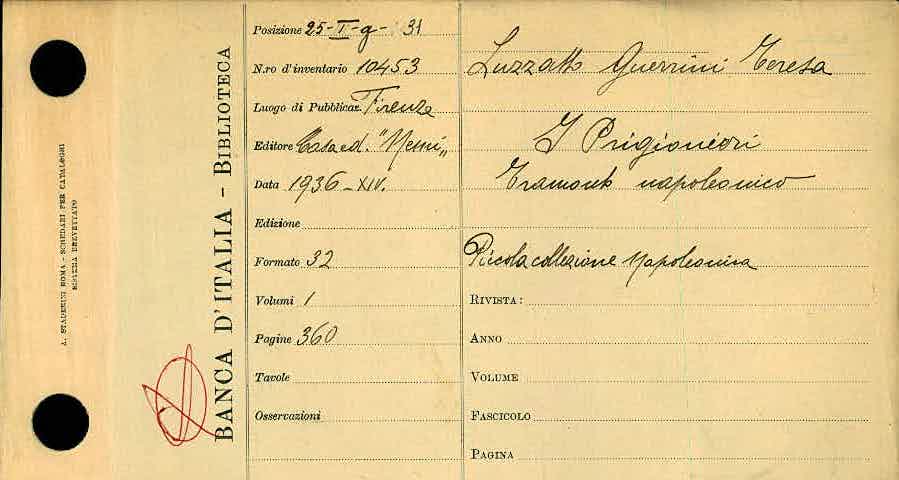 A. STADERINI ROMA - SCHEDARI PER CATALOGHI
SISTEMA BREVETTATO
BANCA D'ITALIA - BIBLIOTECA
Posizione 25-I-g- 31
N.ro d'inventario 10453
Luogo di Pubblicaz. Firenze
Editore Casa ed. "Nemi"
Data 1936-XIV.
Edizione
Formato 32
Volumi 1
Pagine 360
Tavole
Osservazioni
Luzzatto Guerrini Teresa
I Prigionieri
Tramonto napoleonico
Piccola collezione Napoleonica
RIVISTA:
ANNO
VOLUME
FASCICOLO
PAGINA